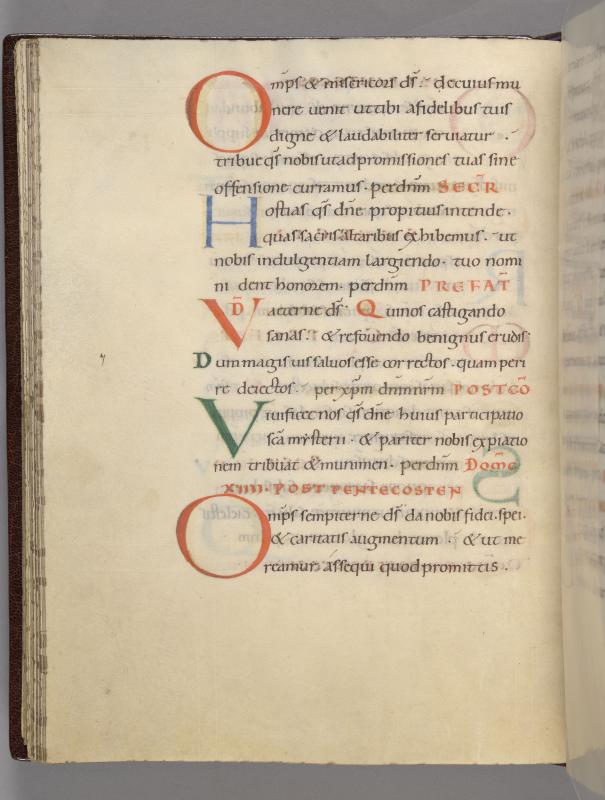 Omp̄s & misericors d̄s· decuius mu
nere uenit uttibi afidelibus tuis
digne & laudabiliter seruiatur·
tribue qs̄ nobis utadpromissiones tuas sine
offensione curramus· perdn̄m SECR̄
Hostias qs̄ dn̄e propitius intende·
quas sacris altaribus exhibemus· ut
nobis indulgentiam largiendo· tuo nomi
ni dent honorem· perdn̄m PREFAT̄
VD̄ aeterne d̄s· Quinos castigando
sanas· & refouendo benignus erudis·
Dum magis uis saluos esse correctos· quam peri
re deiectos· per xp̄m dn̄m nr̄m POSTCŌ
Viuificet nos qs̄ dn̄e huius participatio
sc̄a mysterii· & pariter nobis expiatio
nem tribuat & munimen· perdn̄m Domc̄
XIIII· POST PENTECOSTEN
Omp̄s sempiterne d̄s da nobis fidei· spei·
& caritatis augmentum· & ut me
reamur assequi quod promittis·